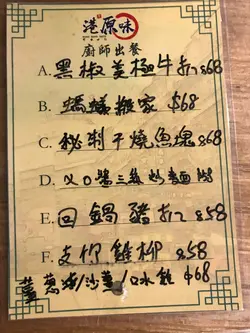 港原味
廚師出餐
A. 黑椒美極牛扒 $68
B. 螞蟻搬家 $68
C. 秘制干燒魚塊 $68
D. XO醬三絲炒麵
E. 回鍋豬扒 $58
F. 支竹雞柳 $58
薑蔥/沙薑/口水雞 $68